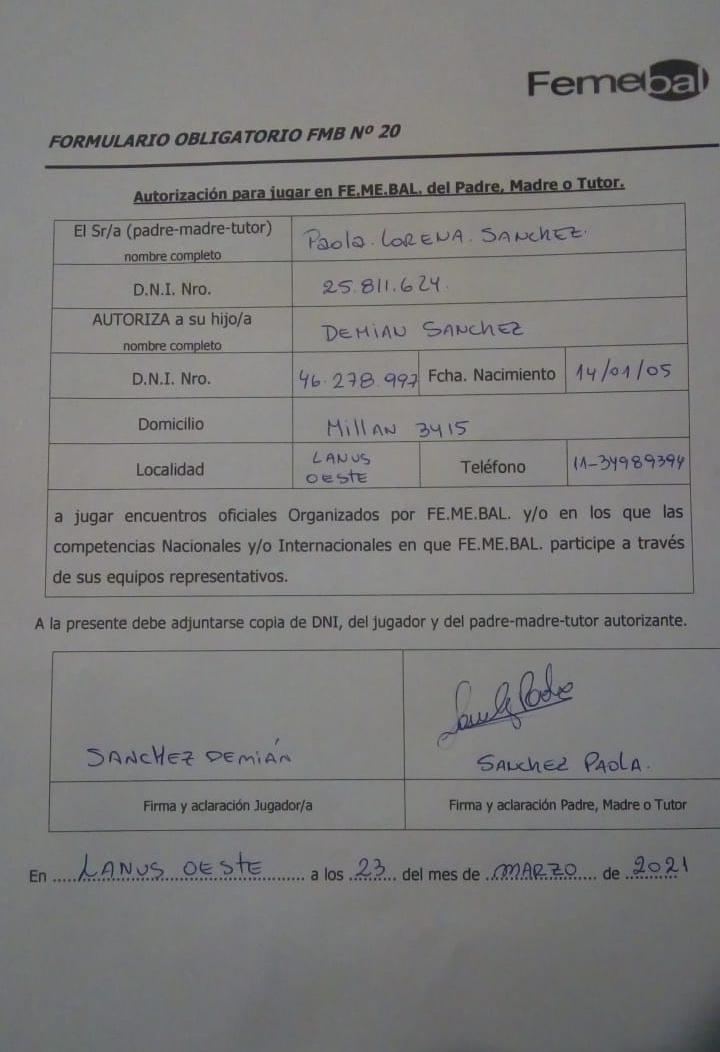 Femebal
FORMULARIO OBLIGATORIO FMB Nº 20
Autorización para jugar en FE.ME.BAL. del Padre, Madre o Tutor.
El Sr/a (padre-madre-tutor)
nombre completo
Paola. LORENA. SANCHEZ.
D.N.I. Nro.
25.811.624.
AUTORIZA a su hijo/a
nombre completo
DEMIAN SANCHEZ
D.N.I. Nro.
46.278.997
Fcha. Nacimiento
14/01/05
Domicilio
MillAN 3415
Localidad
LANUS
OESTE
Teléfono
11-34989394
a jugar encuentros oficiales Organizados por FE.ME.BAL. y/o en los que las
competencias Nacionales y/o Internacionales en que FE.ME.BAL. participe a través
de sus equipos representativos.
A la presente debe adjuntarse copia de DNI, del jugador y del padre-madre-tutor autorizante.
SANCHEZ DEMIÁN
SANCHEZ PAOLA.
Firma y aclaración Jugador/a
Firma y aclaración Padre, Madre o Tutor
En LANUS OESTE a los 23 del mes de MARZO de 2021